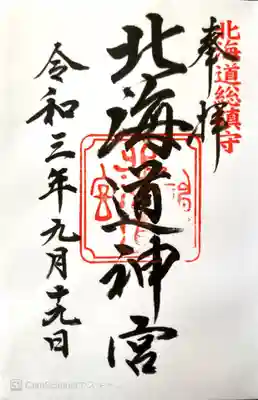 北海道総鎮守
奉拝
北海道神宮
令和三年九月十九日